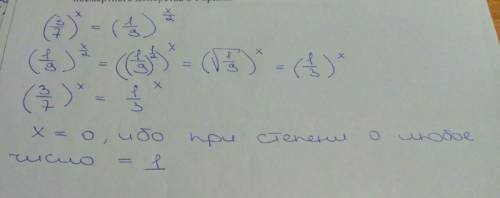 (3/7)^x = (1/9)^(x/2)
(1/9)^(x/2) = ((1/9)^(1/2))^x = (√(1/9))^x = (1/3)^x
(3/7)^x = 1/3^x
x = 0, ибо при степени 0 любое
число = 1